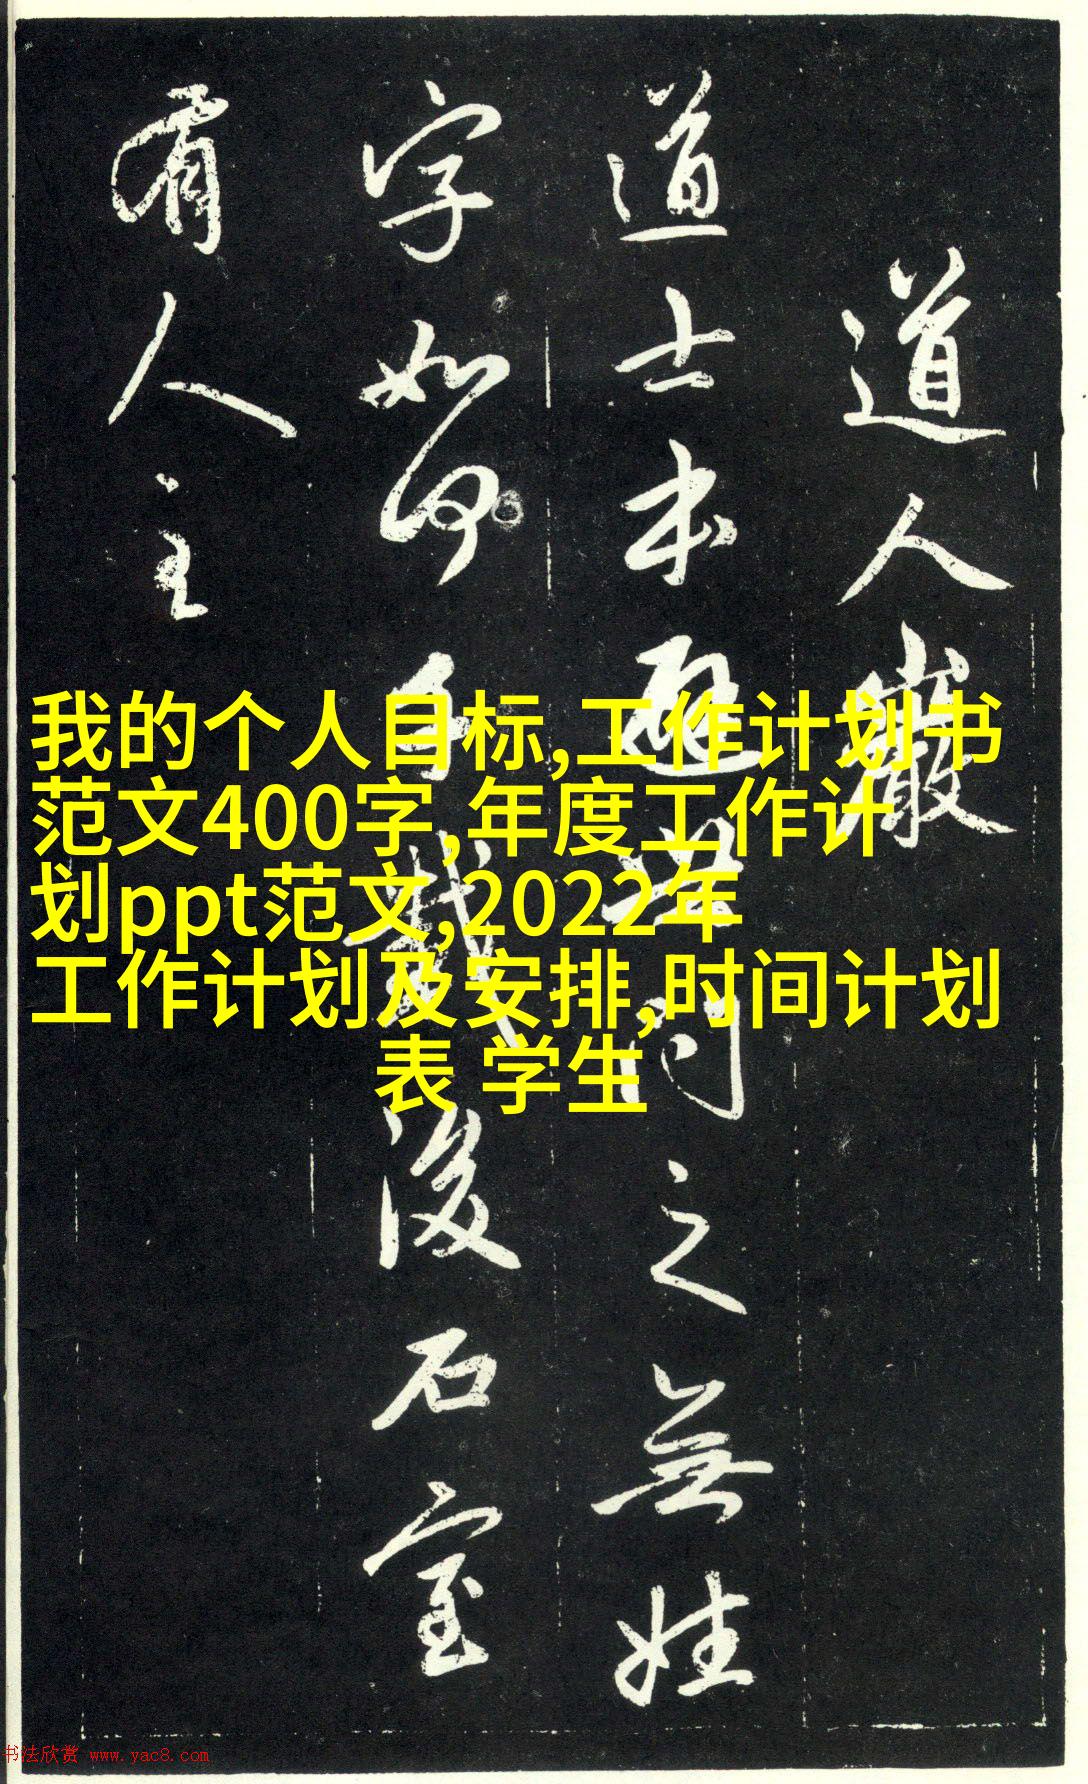 道人巖
道士本避世問之無姓
字如何千載後石室
有人主
我的个人目标,工作计划书
范文400字,年度工作计
划ppt范文,2022年
工作计划及安排,时间计划
表 学生
书法欣赏 www.yac8.com